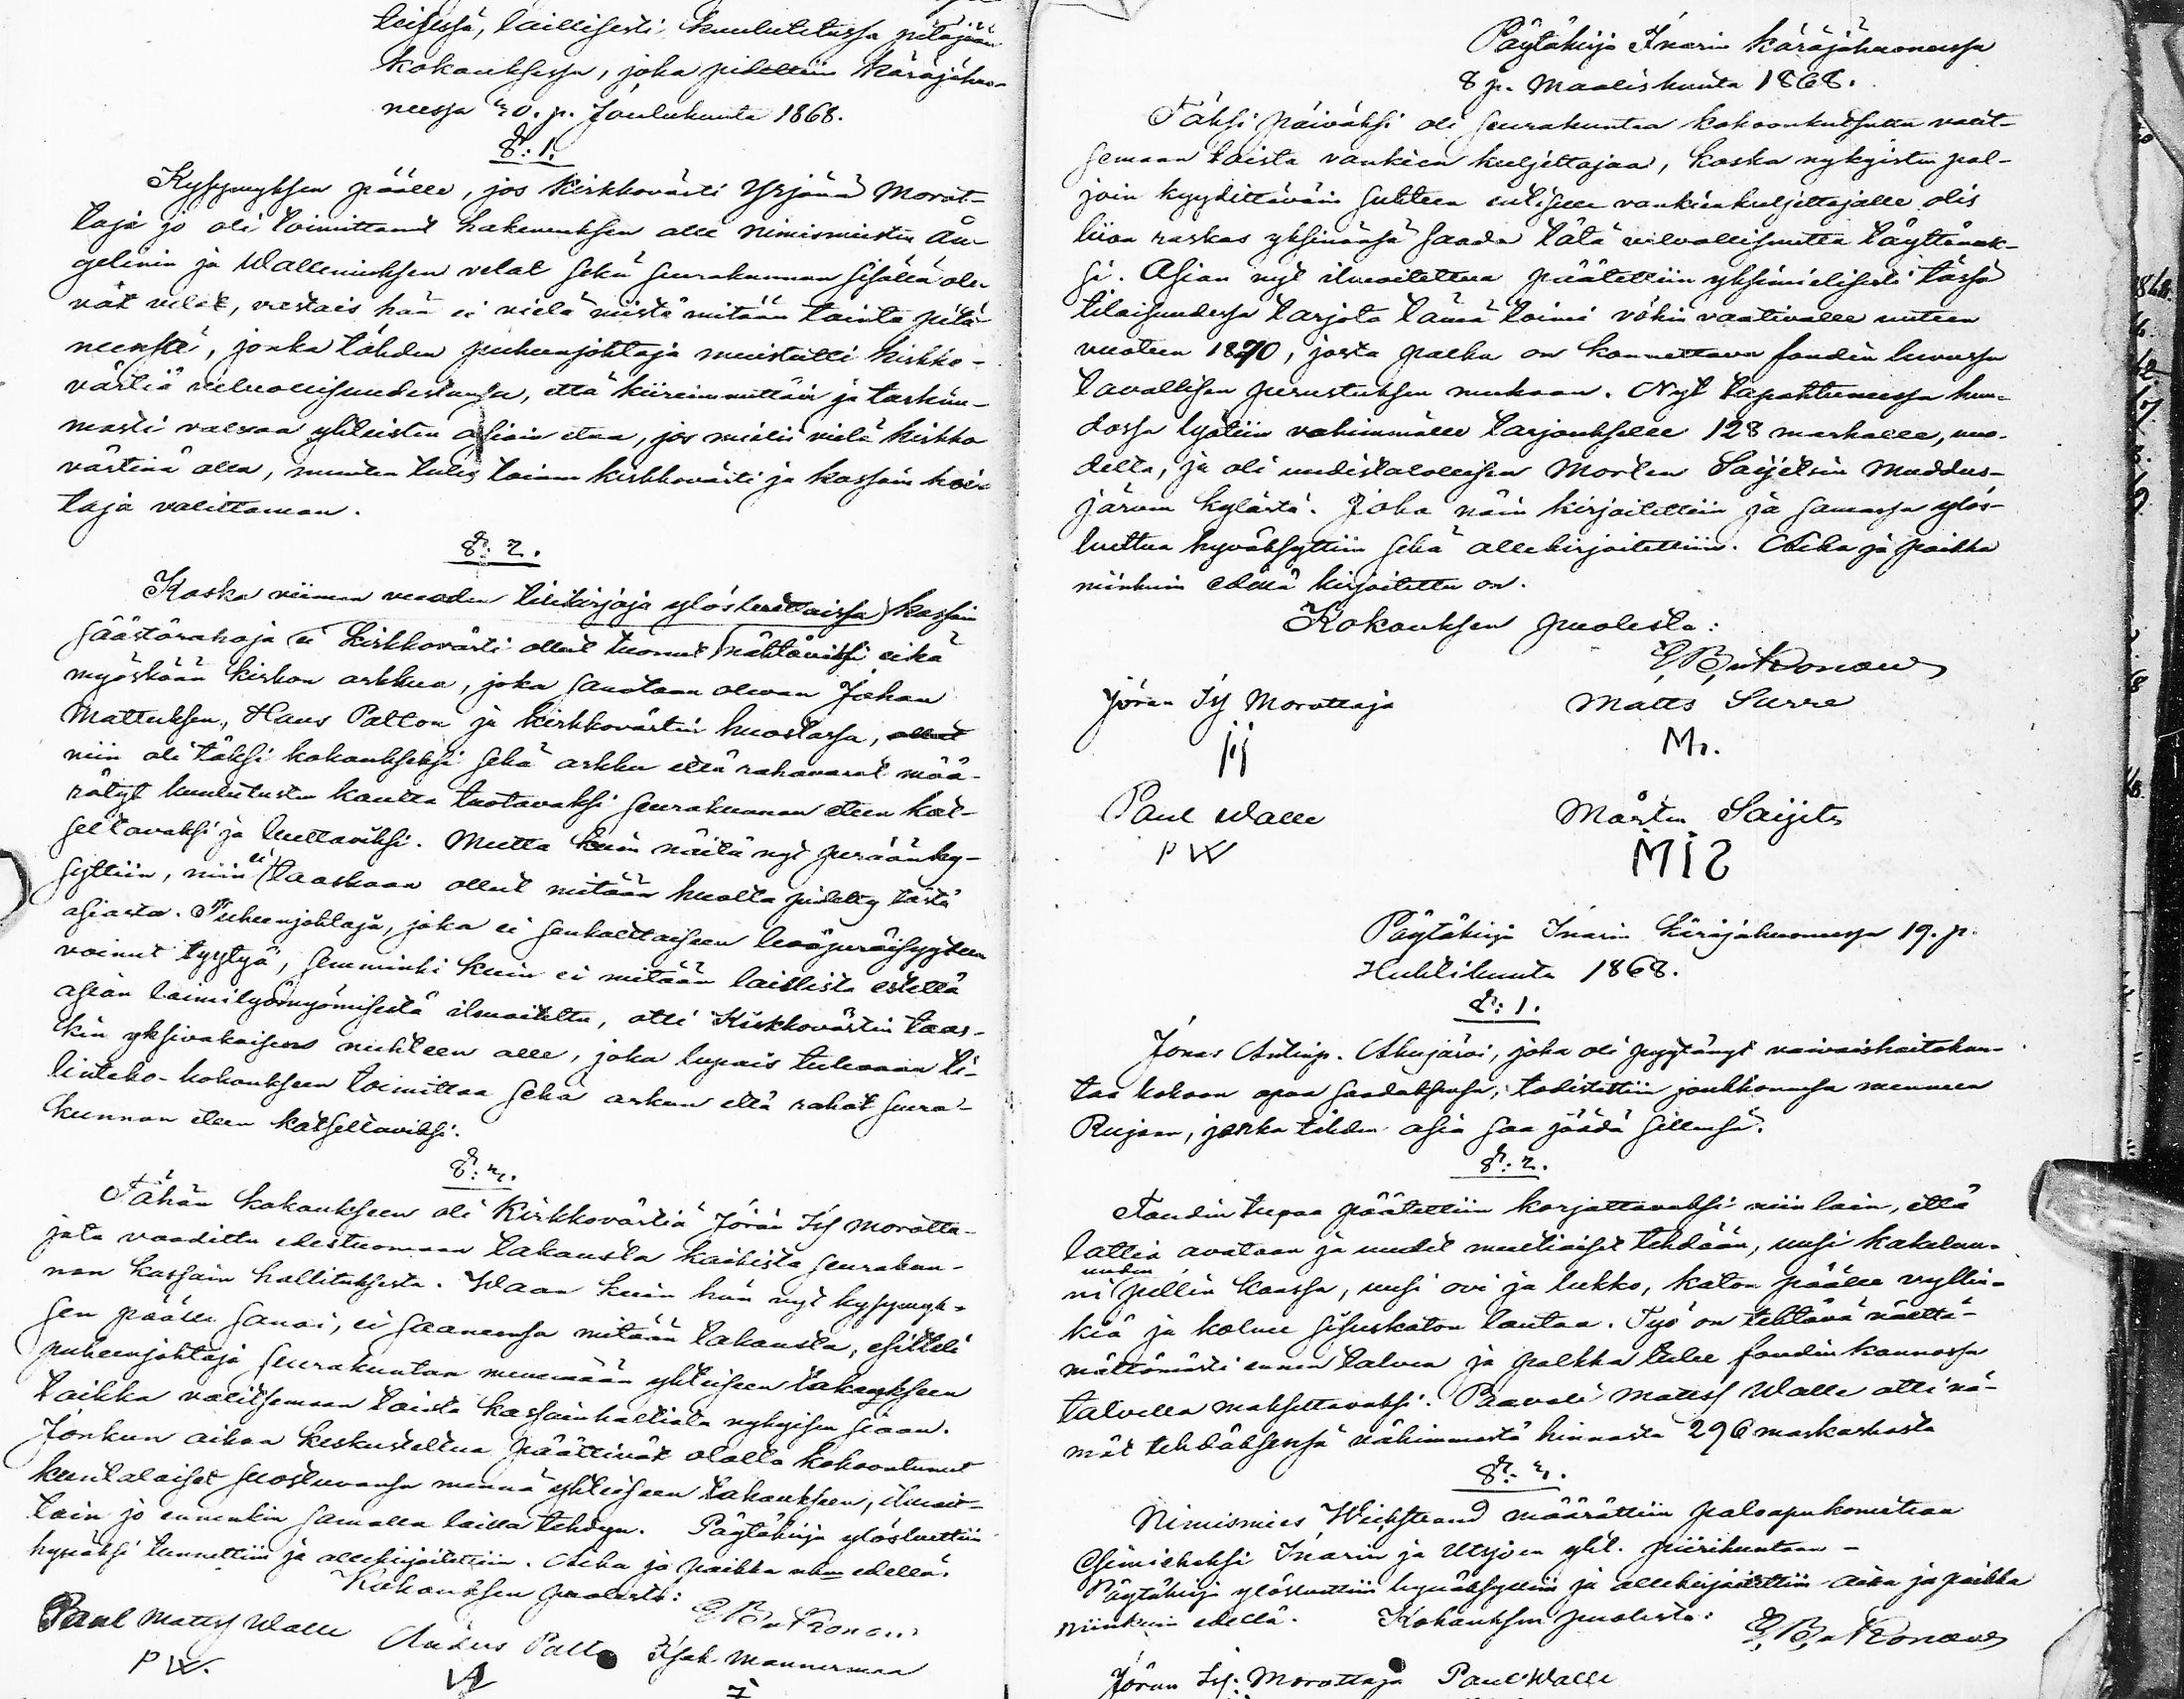 teisessä, laillisesti kuulutetussa pitäjään
kokouksessa, joka pidettiin käräjähuo-
neessa 20. p. Joulukuuta 1868.
§: 1.
Kysymyksen päälle, jos kirkkovärti Yrjänä Morot-
taja jo oli toimittanut hakemuksen alle nimismiesten
ja Walleniuksen velat sekä seurakunnan sisällä ole-
vat velat, vastais hän ei vielä niistä mitään
jonka tähden puheenjohtaja muistutti kirkko-
värtiä velvollisuudestansa, että kiireimmittäin ja tarkim-
masti valvoa yhteisten asiain etua, jos mielii vielä kirkko
värtinä olla, muuten tulis toinen kirkkovärti ja kassain hoi-
taja valittaman.
§: 2.
Koska viimen vuoden tilikirjoja ylösluettaissa kassain
säästörahoja ei kirkkovärti ollut tuonut nähtäviksi eikä
myöskään kirkon arkkua, joka sanotaan olevan Johan
Mattuksen, Hans Palton ja kirkkovärtin huostassa, ollut
niin oli täksi kokoukseksi sekä arkku että rahavarat mää-
rätyt kuulutusten kautta tuotavaksi seurakunnan eteen kat-
seltavaksi ja luettaviksi. Mutta kuin näitä nyt peräänky-
syttiin, niin ei taaskaan ollut mitään huolta pidetty tästä
asiasta. Puheenjohtaja, joka ei senkaltaiseen leväperäisyyteen
voinut tyytyä, semminki kuin ei mitään laillista estettä
asian laimilyömisestä ilmoitettu, otti Kirkkovärtin taas-
kin yksivakaisen nuhteen alle, joka lupais tulevaan ti-
linteko-kokoukseen toimittaa sekä arkun että rahat seura-
kunnan eteen katseltaviksi.
§: 3.
Tähän kokoukseen oli Kirkkovärtiä Jöran Isj Morotta-
jata vaadittu edestuomaan takausta kaikista seurakun-
nan kassain hallituksesta. Waan kuin hän nyt kysymyk-
sen päälle sanoi, ei saaneensa mitään takausta, esitteli
puheenjohtaja seurakuntaa menemään yhteiseen takaukseen
taikka valitsemaan toista kassainhaltiata nykyisen siaan.
Jonkun aikaa keskusteltua päättivät olalla kokoontunut
kuntalaiset suostuvansa mennä yhteiseen takaukseen, ilmoit-
tain jo ennenkin samalla lailla tehdyn. Päytäkirja ylösluettiin
hyväksi tunnettiin ja allekirjoitettiin. Aika ja paikka edellä.
Kokouksen puolesta:
Paul Matts Walle
Anders Palto
Isak Mannermaa
P W.
Päytäkirja Inarin käräjähuoneessa
8 p. Maaliskuuta 1868.
Täksi päiväksi oli seurakuntaa kokoonkutsuttu valit-
semaan toista vankien kuljettajaa, koska nykyisten pal-
join kyydittäväin suhteen entiselle vankeinkuljettajalle olis
liian raskas yksinänsä saada tätä velvollisuutta täyttäök-
si. Asian nyt ilmoitettua päätettiin yksimielisesti tässä
tilaisuudessa tarjota tämä toimi vähin vaativalle uuteen
vuoteen 1870, josta palkka on kannettava foudin luvussa
tavallisen perustuksen mukaan. Nyt tapahtuneessa huu-
dossa lyötiin vahimmälle tarjoukselle 128 markalle, vuo-
delta, ja oli uudistalollisen Morten Saijetsin Muddus-
järven kylästä. Joka näin kirjoitettiin ja samassa ylös-
luettua hyväksyttiin sekä allekirjoitettiin. Aika ja paikka
niinkuin edellä kirjoitettu on.
Kokouksen puolesta:
Jöran Isj Morottaja
Matts Sarre
M.
Paul Walle
Mårten Saijets
P W
MIS
Päytäkirja Inarin käräjähuoneessa 19. p.
Huhtikuuta 1868.
§: 1.
Jonas Akujärvi, joka oli pyytänyt vaivaishoitokun-
taa kokoon apua saadaksensa, todistettiin joukkonensa menneen
Rujaan, jonka tähden asia saa jäädä sillensä.
§: 2.
Foudin tupaa päätettiin korjattavaksi niin lain, että
lattia avataan ja uudet multiaiset tehdään, uusi kakeluu-
ni uuden pellin kanssa, uusi ovi ja lukko, katon päälle
ja kolme sisuskaton lautaa. Työ on tehtävä
mättömästi ennen talvea ja palkka tulee foudin kannossa
talvella maksettavaksi. Paavali Matts Walle otti nä-
mät tehdäksensä vähimmästä hinnasta 296 markasta
§: 3.
Nimismies Wichstrand määrättiin paloapukomitean
Esimieheksi Inarin ja Utsjoen yht. piirikuntaan -
Päytäkirja ylösluettiin hyväksyttiin ja allekirjoitettiin aika ja paikka
niinkuin edellä. Kokouksen puolesta:
Jöran Isj: Morottaja Paul Walle